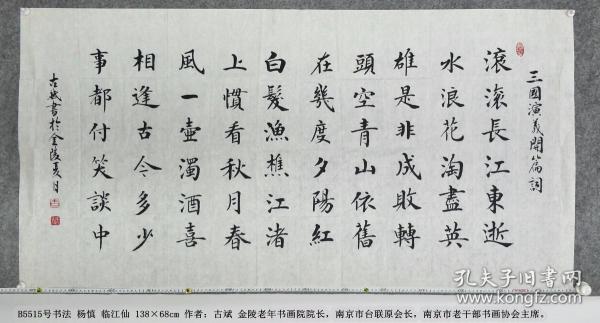 三國演義開篇詞
滾滾長江東逝
水浪花淘盡英
雄是非成敗轉
頭空青山依舊
在幾度夕陽紅
白髮漁樵江渚
上慣看秋月春
風一壺濁酒喜
相逢古今多少
事都付笑談中
古斌書於金陵夏月
孔夫子旧书网
B5515号书法 杨慎 临江仙 138×68cm 作者：古斌 金陵老年书画院院长，南京市台联原会长，南京市老干部书画协会主席。